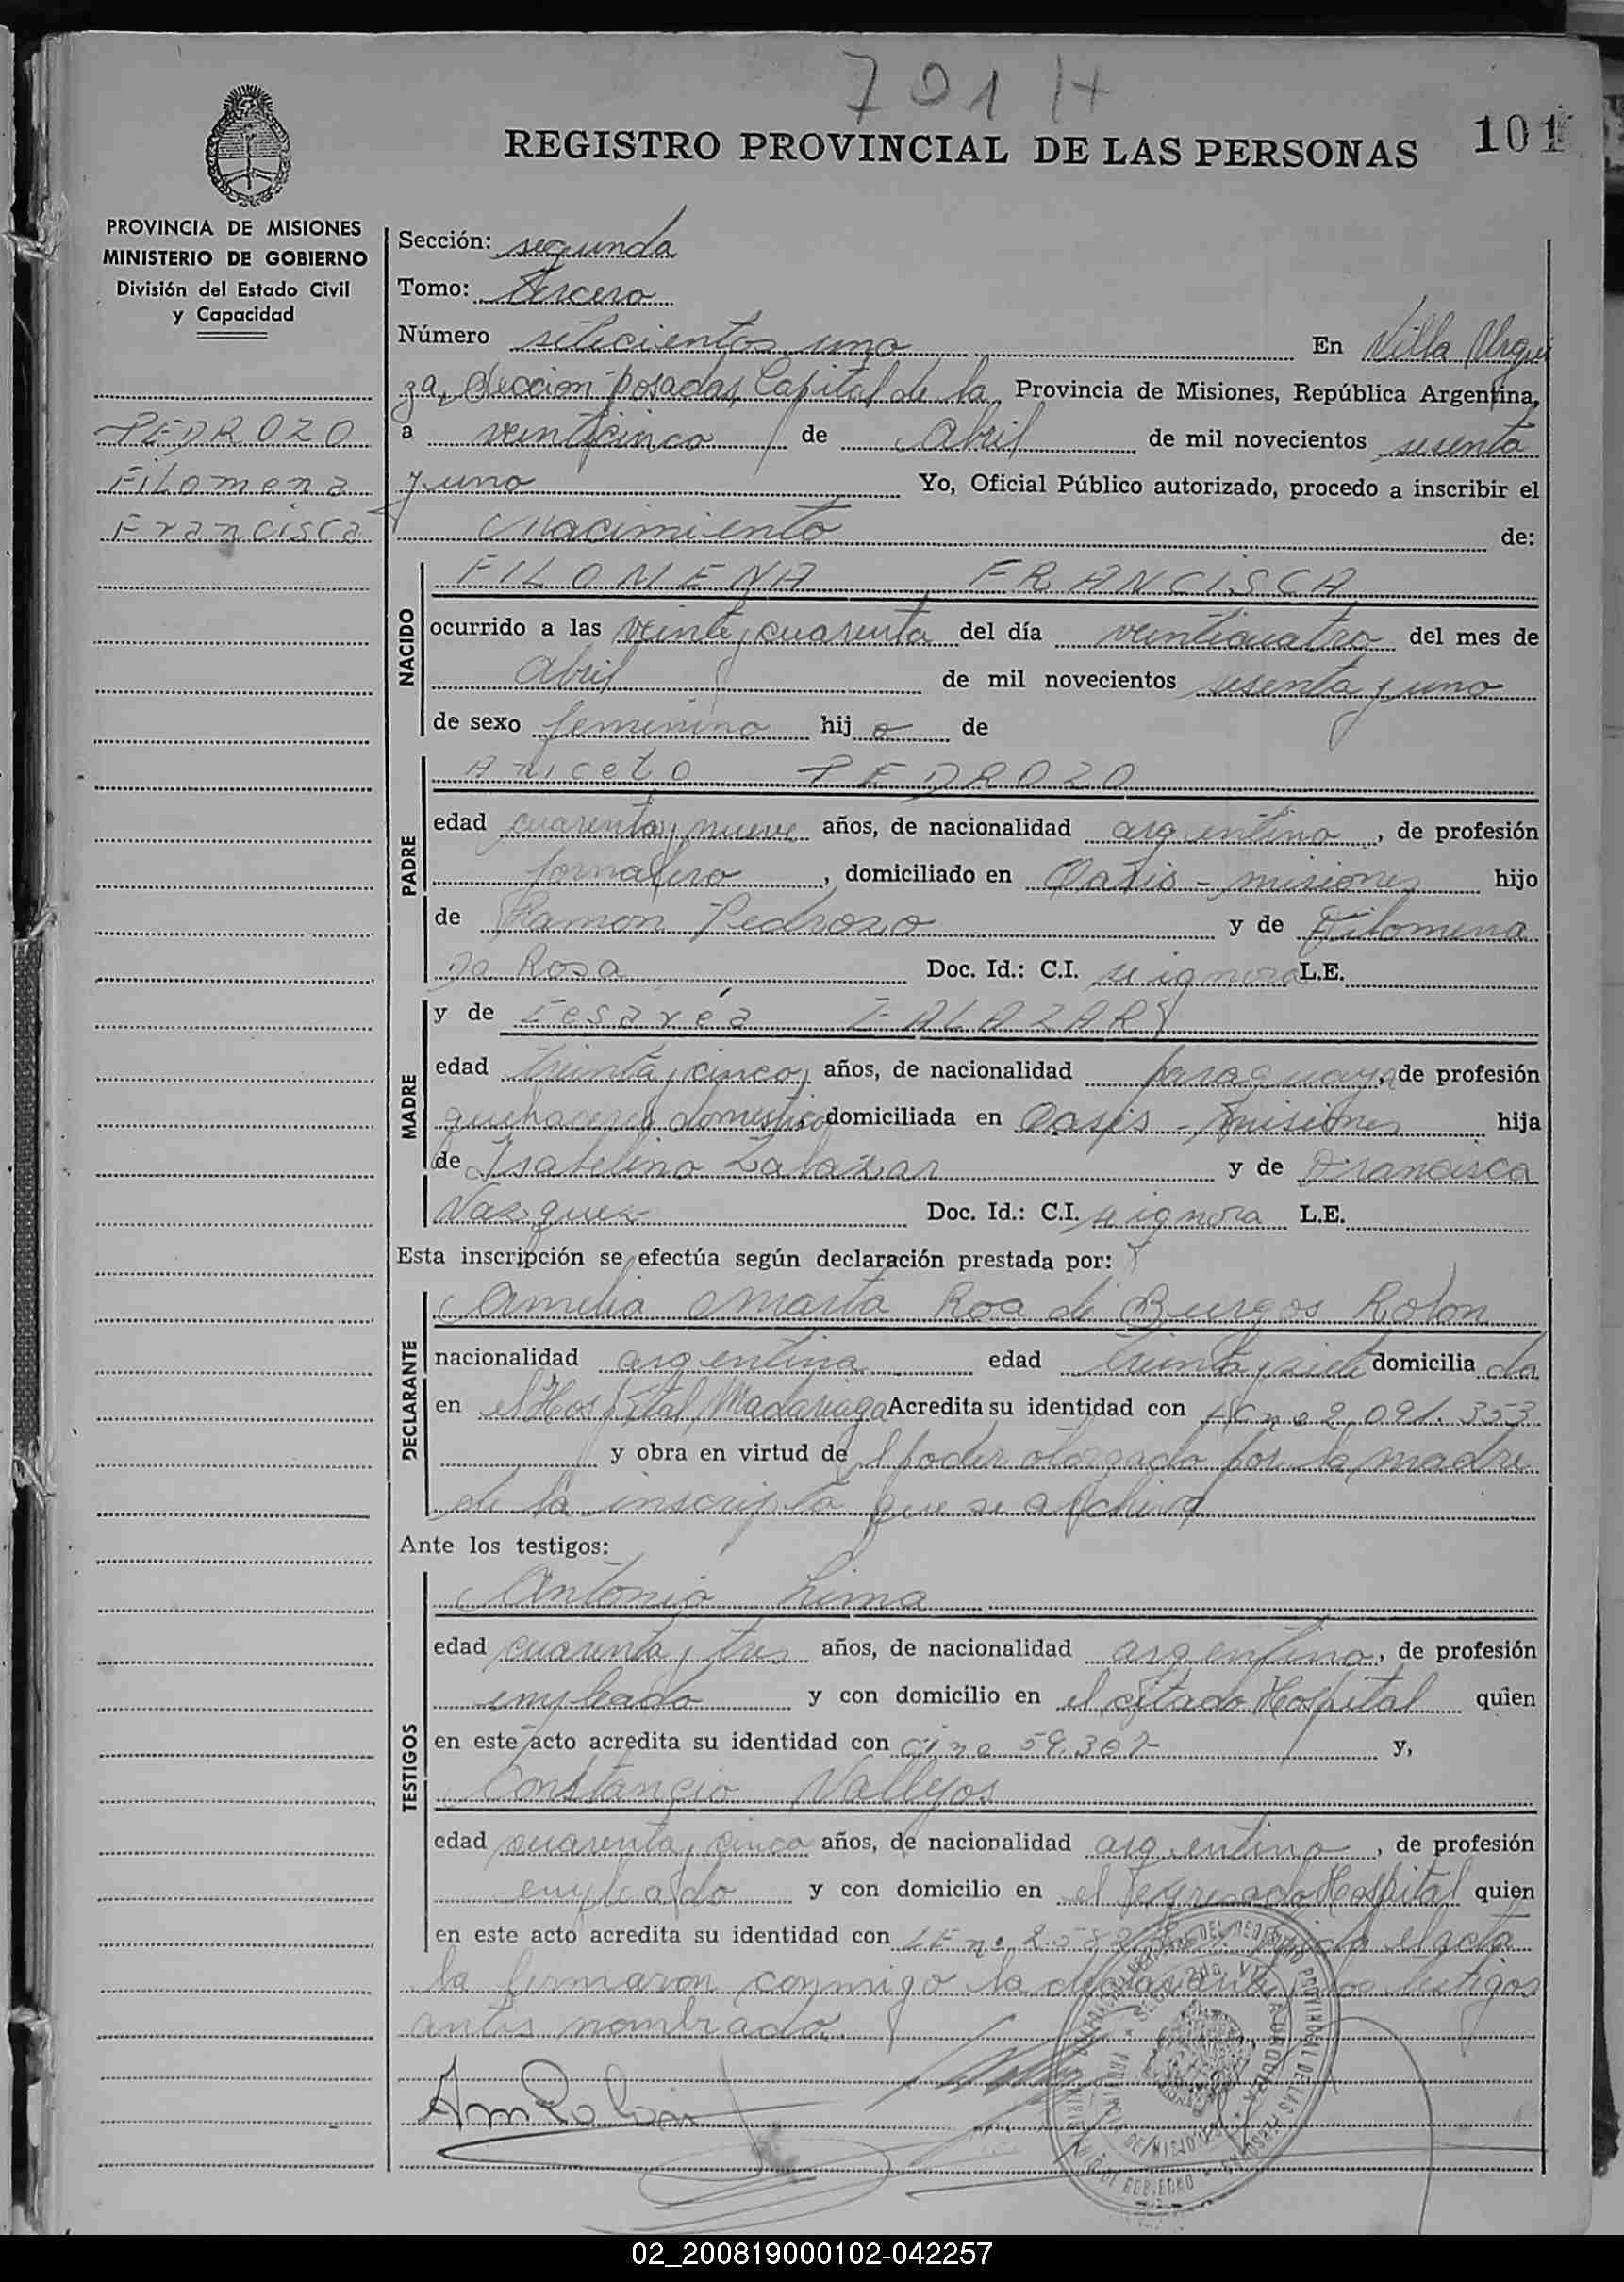 701 H
101
REGISTRO PROVINCIAL DE LAS PERSONAS
PROVINCIA DE MISIONES
MINISTERIO DE GOBIERNO
División del Estado Civil
y Capacidad
PEDROZO
Filomena
Francisca
Sección: segunda
Tomo: Tercero
Número setecientos uno En Villa Urqui
za, Seccion Posadas, Capital de la Provincia de Misiones, República Argentina,
a veinticinco de Abril de mil novecientos sesenta
y uno Yo, Oficial Público autorizado, procedo a inscribir el
nacimiento de:
NACIDO
FILOMENA FRANCISCA
ocurrido a las veinte y cuarenta del día veinticuatro del mes de
Abril de mil novecientos sesenta y uno
de sexo femenino hij a de
PADRE
Aniceto PEDROZO
edad cuarenta y nueve años, de nacionalidad argentino, de profesión
jornalero, domiciliado en Oasis - misiones hijo
de Ramon Pedrozo y de Filomena
Da Rosa Doc. Id.: C.I. se ignora L.E.
MADRE
y de Cesárea ZALAZAR
edad treinta y cinco años, de nacionalidad paraguaya, de profesión
quehaceres domestico domiciliada en Oasis - misiones hija
de Isabelino Zalazar y de Francisca
Vazquez Doc. Id.: C.I. se ignora L.E.
Esta inscripción se efectúa según declaración prestada por:
DECLARANTE
Amelia Marta Roa de Burgos Rolon
nacionalidad argentina edad treinta y siete domicilia da
en el Hospital Madariaga Acredita su identidad con LC no 2.091.353
y obra en virtud de l poder otorgado por la madre
de la inscripta que se archiva
Ante los testigos:
TESTIGOS
Antonio Lima
edad cuarenta y tres años, de nacionalidad argentino, de profesión
empleado y con domicilio en el citado Hospital quien
en este acto acredita su identidad con CI no 59.307 y,
Constancio Vallejos
edad cuarenta y cinco años, de nacionalidad argentino, de profesión
empleado y con domicilio en el expresado Hospital quien
en este acto acredita su identidad con LE no el acta
la firmaron conmigo la declarante y los testigos
antes nombrado.
PROVINCIAL DE LAS PERSONAS
02_200819000102-042257